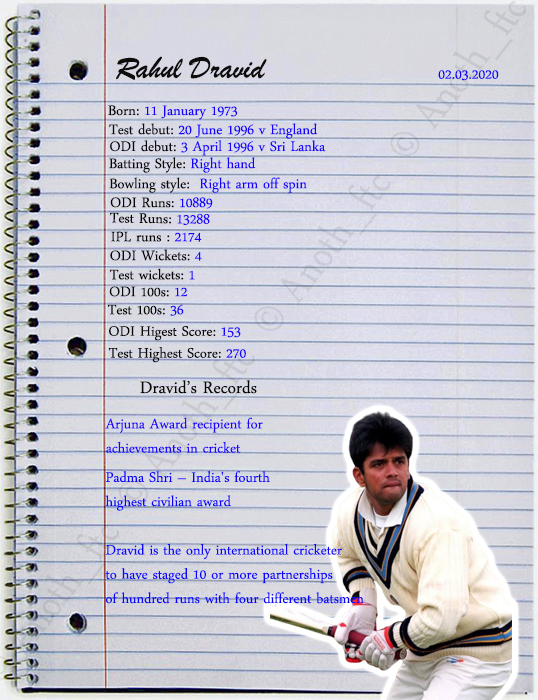 Rahul Dravid
02.03.2020
Born: 11 January 1973
Test debut: 20 June 1996 v England
ODI debut: 3 April 1996 v Sri Lanka
Batting Style: Right hand
Bowling style: Right arm off spin
ODI Runs: 10889
Test Runs: 13288
IPL runs : 2174
ODI Wickets: 4
Test wickets: 1
ODI 100s: 12
Test 100s: 36
ODI Higest Score: 153
Test Highest Score: 270
Dravid's Records
Arjuna Award recipient for
achievements in cricket
Padma Shri – India's fourth
highest civilian award
Dravid is the only international cricketer
to have staged 10 or more partnerships
of hundred runs with four different batsmen
© Anoth_ftc © Anoth_ftc © Anoth_ftc